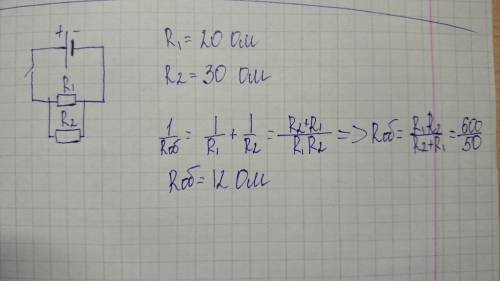 + -
R₁ = 20 Ом
R₂ = 30 Ом
R₁
R₂
1/Rоб = 1/R₁ + 1/R₂ = R₂+R₁/R₁R₂ => Rоб = R₁R₂/R₂+R₁ = 600/50
Rоб = 12 Ом